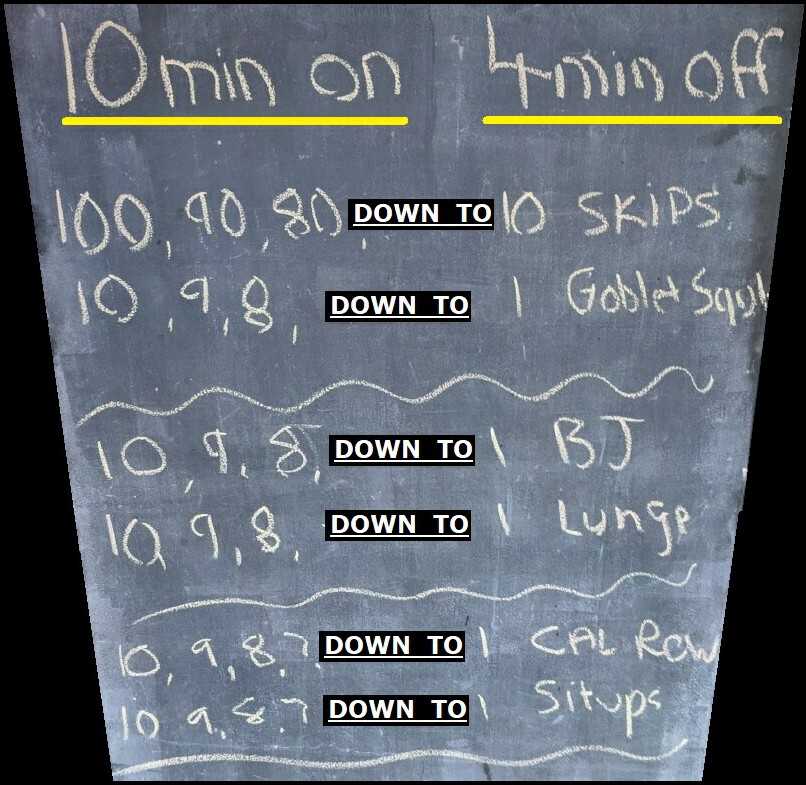 10 min on 4 min off
100, 90, 80, DOWN TO 10 SKIPS
10, 9, 8, DOWN TO 1 Goblet Squat
10, 9, 8, DOWN TO 1 BJ
10, 9, 8, DOWN TO 1 Lunge
10, 9, 8, 7, DOWN TO 1 CAL Row
10 9, 8, 7 DOWN TO 1 Situps